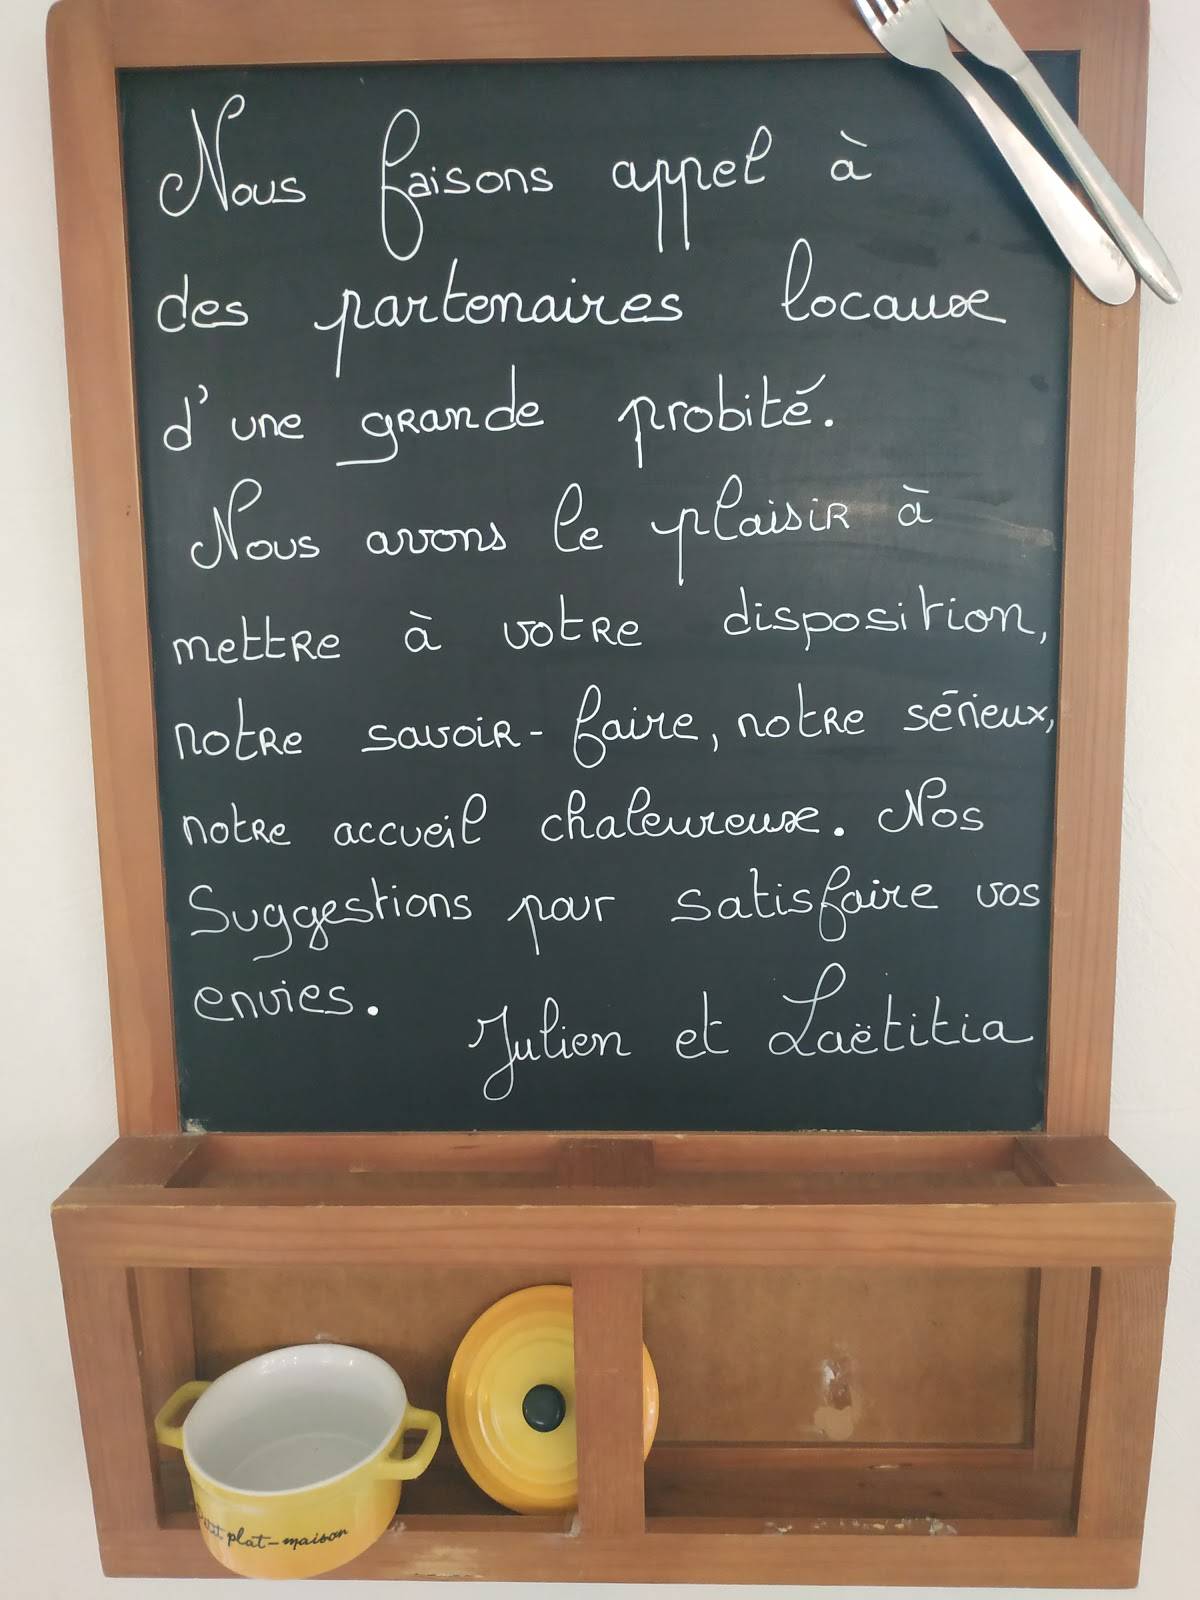 Nous faisons appel à
des partenaires locaux
d'une grande probité.
Nous avons le plaisir à
mettre à votre disposition,
notre savoir-faire, notre sérieux,
notre accueil chaleureuse. Nos
Suggestions pour satisfaire vos
envies.
Julien et Laëtitia
Petit plat-maison